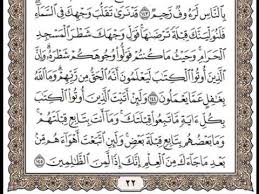 بِٱلنَّاسِ لَرَءُوفٌ رَّحِيمٌ ١٤٣ قَدْ نَرَىٰ تَقَلُّبَ وَجْهِكَ فِى ٱلسَّمَآءِ
فَلَنُوَلِّيَنَّكَ قِبْلَةً تَرْضَىٰهَا فَوَلِّ وَجْهَكَ شَطْرَ ٱلْمَسْجِدِ
ٱلْحَرَامِ وَحَيْثُ مَا كُنتُمْ فَوَلُّوا۟ وُجُوهَكُمْ شَطْرَهُۥ وَإِنَّ
ٱلَّذِينَ أُوتُوا۟ ٱلْكِتَٰبَ لَيَعْلَمُونَ أَنَّهُ ٱلْحَقُّ مِن رَّبِّهِمْ وَمَا ٱللَّهُ
بِغَٰفِلٍ عَمَّا يَعْمَلُونَ ١٤٤ وَلَئِنْ أَتَيْتَ ٱلَّذِينَ أُوتُوا۟ ٱلْكِتَٰبَ
بِكُلِّ ءَايَةٍ مَّا تَبِعُوا۟ قِبْلَتَكَ وَمَآ أَنتَ بِتَابِعٍ قِبْلَتَهُمْ
وَمَا بَعْضُهُم بِتَابِعٍ قِبْلَةَ بَعْضٍ وَلَئِنِ ٱتَّبَعْتَ أَهْوَآءَهُم مِّنۢ
بَعْدِ مَا جَآءَكَ مِنَ ٱلْعِلْمِ إِنَّكَ إِذًا لَّمِنَ ٱلظَّٰلِمِينَ ١٤٥
٢٢